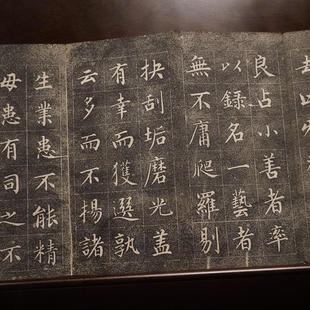 良占小善者率
以錄名一藝者
無不庸爬羅剔
抉刮垢磨光盖
有幸而獲選孰
云多而不揚諸
生業患不能精
毋患有司之不